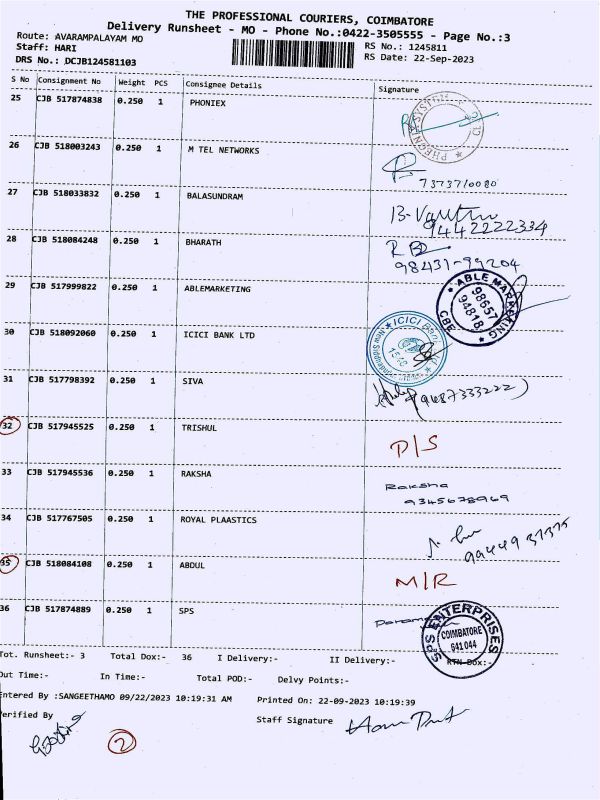 THE PROFESSIONAL COURIERS, COIMBATORE
Delivery Runsheet - MO - Phone No.:0422-3505555 - Page No.:3
Route: AVARAMPALAYAM MO
RS No.: 1245811
Staff: HARI
RS Date: 22-Sep-2023
DRS No.: DCJB124581103
S No Consignment No Weight PCS Consignee Details Signature
25 CJB 517874838 0.250 1 PHONIEX
26 CJB 518003243 0.250 1 M TEL NETWORKS
7373710080
27 CJB 518033832 0.250 1 BALASUNDRAM
9442222334
28 CJB 518084248 0.250 1 BHARATH
98431-99204
29 CJB 517999822 0.250 1 ABLEMARKETING
ABLE MARKETING
98657
94818
CBE
30 CJB 518092060 0.250 1 ICICI BANK LTD
ICICI Bank
31 CJB 517798392 0.250 1 SIVA
9487333222)
32 CJB 517945525 0.250 1 TRISHUL
D/S
33 CJB 517945536 0.250 1 RAKSHA
Raksha
9345678969
34 CJB 517767505 0.250 1 ROYAL PLAASTICS
35 CJB 518084108 0.250 1 ABDUL
M/R
36 CJB 517874889 0.250 1 SPS
SPS ENTERPRISES
COIMBATORE
641 044
Tot. Runsheet:- 3 Total Dox:- 36 I Delivery:- II Delivery:- RTN Dox:-
Out Time:- In Time:- Total POD:- Delvy Points:-
Entered By :SANGEETHAMO 09/22/2023 10:19:31 AM Printed On: 22-09-2023 10:19:39
Verified By
Staff Signature
2